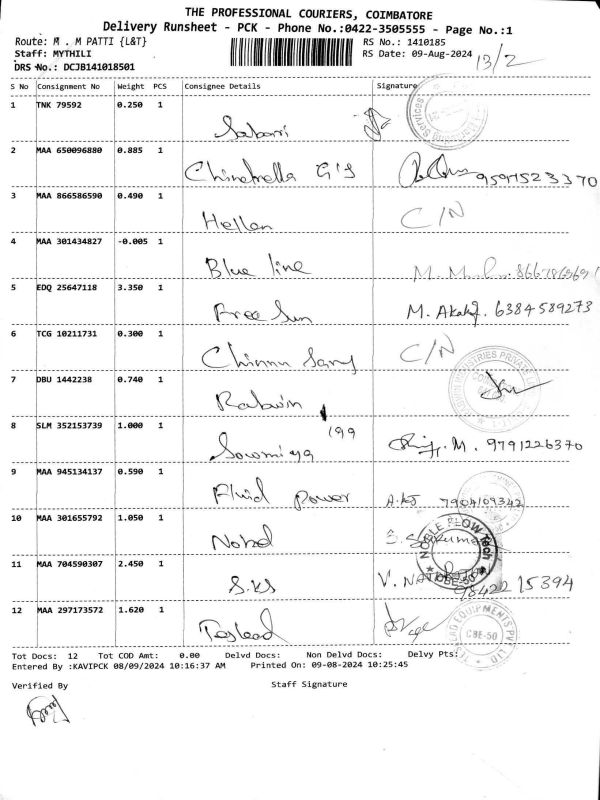 THE PROFESSIONAL COURIERS, COIMBATORE
Delivery Runsheet - PCK - Phone No.:0422-3505555 - Page No.:1
Route: M . M PATTI {L&T} RS No.: 1410185
Staff: MYTHILI RS Date: 09-Aug-2024 13/2
DRS No.: DCJB141018501
S No Consignment No Weight PCS Consignee Details Signature
1 TNK 79592 0.250 1 Sabari
2 MAA 650096880 0.885 1 G'S 9597523370
3 MAA 866586590 0.490 1 Hellan C/N
4 MAA 301434827 -0.005 1 Blue line M. M.
5 EDQ 25647118 3.350 1 Free Sun M. 6384589273
6 TCG 10211731 0.300 1 Chinnu C/N
7 DBU 1442238 0.740 1
8 SLM 352153739 1.000 1 Sowmiya 199 M. 9791226370
9 MAA 945134137 0.590 1 Fluid Power 7904109342
10 MAA 301655792 1.050 1 NOBLE FLOW Tech
11 MAA 704590307 2.450 1 S.KS V. 98422 15394
CBE-50
12 MAA 297173572 1.620 1 Teslead CBE-50
Tot Docs: 12 Tot COD Amt: 0.00 Delvd Docs: Non Delvd Docs: Delvy Pts:
Entered By :KAVIPCK 08/09/2024 10:16:37 AM Printed On: 09-08-2024 10:25:45
Verified By Staff Signature